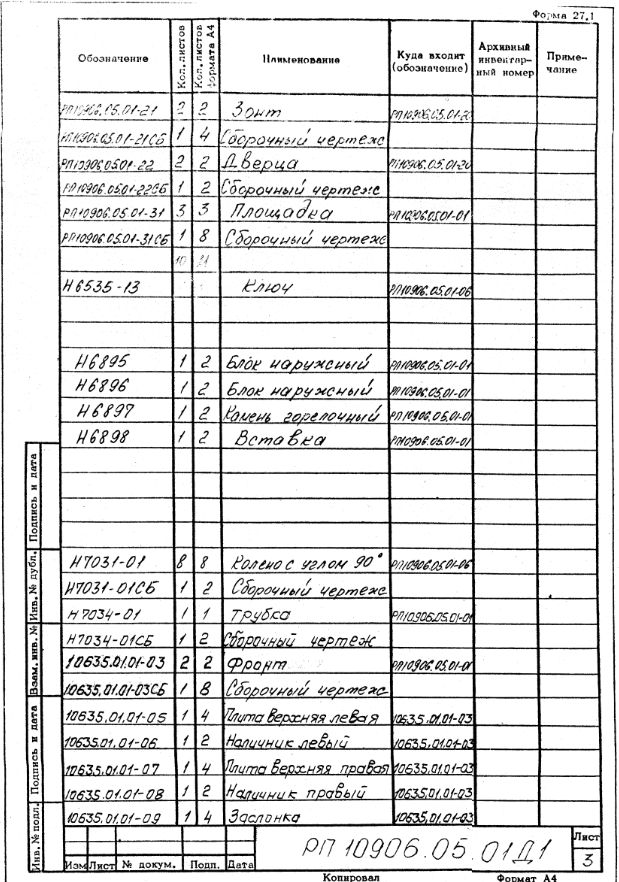 Форма 27.1
Обозначение Кол. листов Кол. листов формата А4 Наименование Куда входит (обозначение) Архивный инвентарный номер Примечание
РП10906.05.01-21 2 2 Зонт РП10906.05.01-20
РП10906.05.01-21СБ 1 4 Сборочный чертеж
РП10906.05.01-22 2 2 Дверца РП10906.05.01-20
РП10906.05.01-22СБ 1 2 Сборочный чертеж
РП10906.05.01-31 3 3 Площадка РП10906.05.01-01
РП10906.05.01-31СБ 1 8 Сборочный чертеж
10 21
Н6535-13 Ключ РП10906.05.01-06
Н6895 1 2 Блок наружный РП10906.05.01-01
Н6896 1 2 Блок наружный РП10906.05.01-01
Н6897 1 2 Камень горелочный РП10906.05.01-01
Н6898 1 2 Вставка РП10906.05.01-01
Н7031-01 8 8 Колено с углом 90° РП10906.05.01-06
Н7031-01СБ 1 2 Сборочный чертеж
Н7034-01 1 1 Трубка РП10906.05.01-01
Н7034-01СБ 1 2 Сборочный чертеж
10635.01.01-03 2 2 Фронт РП10906.05.01-01
10635.01.01-03СБ 1 8 Сборочный чертеж
10635.01.01-05 1 4 Плита верхняя левая 10635.01.01-03
10635.01.01-06 1 2 Наличник левый 10635.01.01-03
10635.01.01-07 1 4 Плита верхняя правая 10635.01.01-03
10635.01.01-08 1 2 Наличник правый 10635.01.01-03
10635.01.01-09 1 4 Заслонка 10635.01.01-03
Инв. № подл. Подпись и дата Взам. инв. № Инв. № дубл. Подпись и дата
РП 10906.05.01Д1
Лист
3
Изм Лист № докум. Подп. Дата
Копировал Формат А4